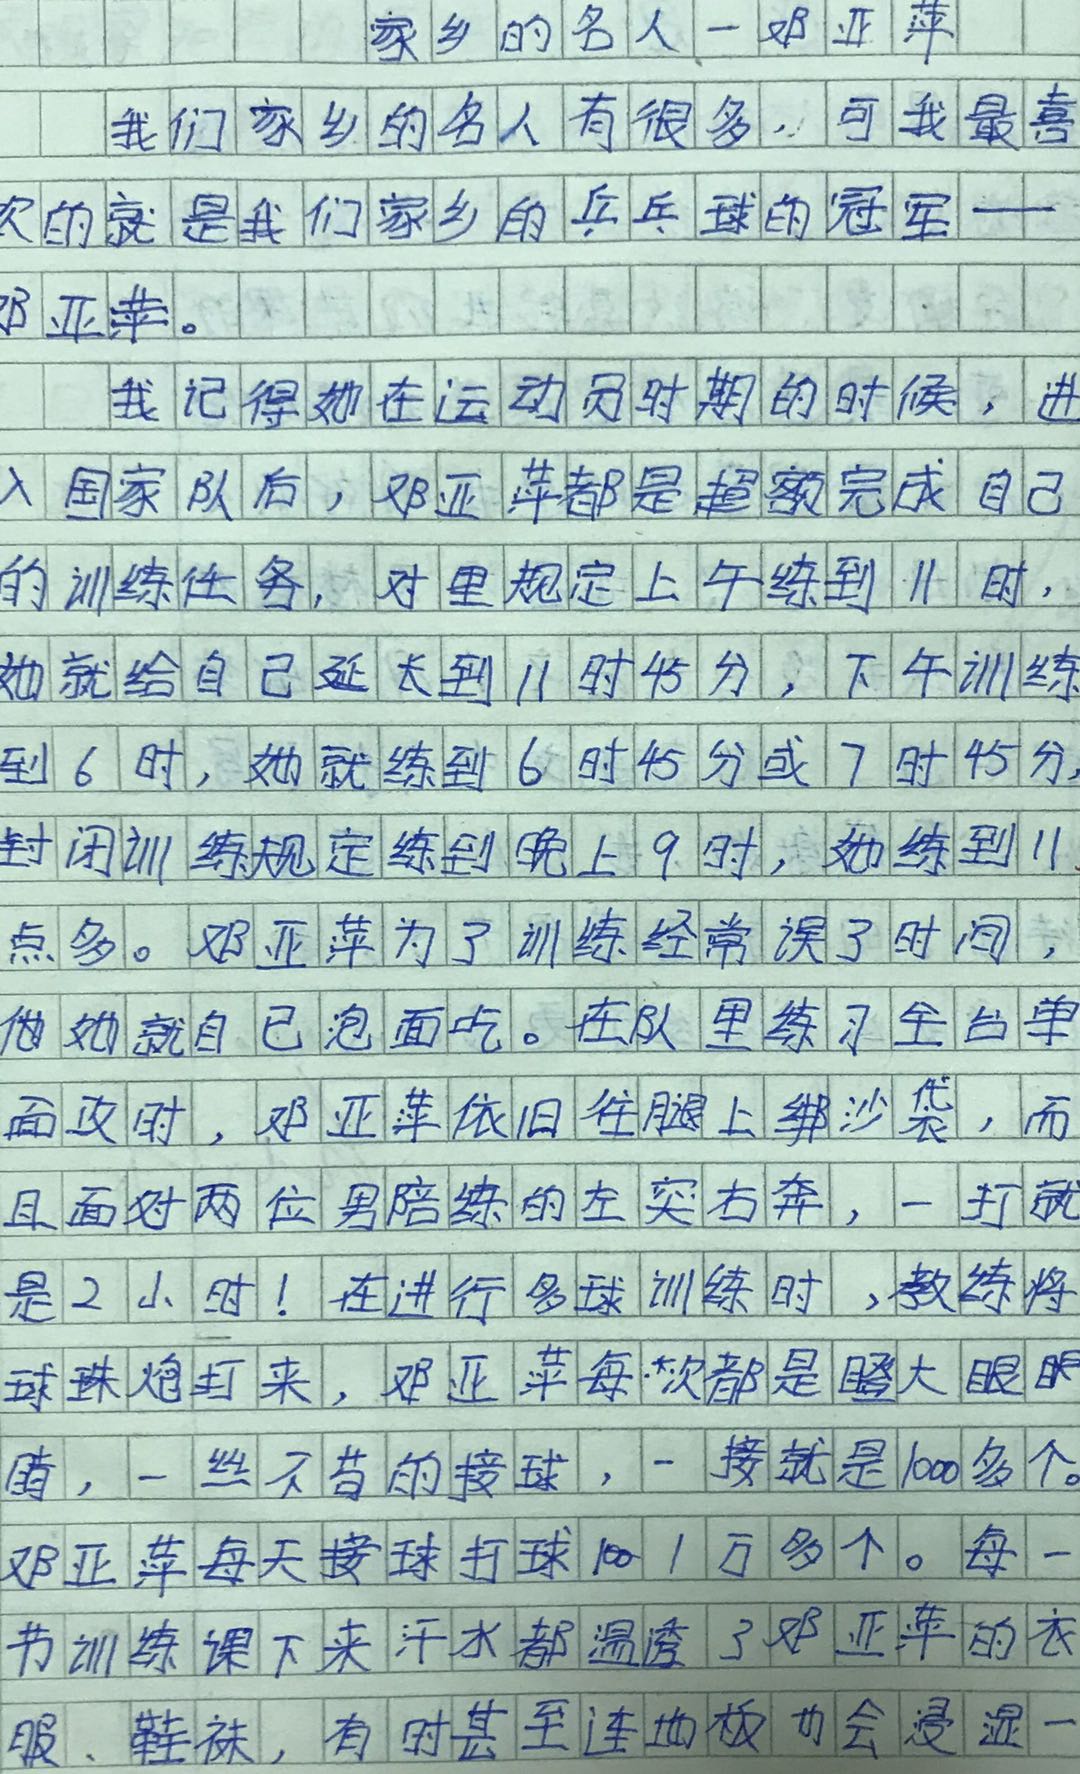 家乡的名人一邓亚萍
我们家乡的名人有很多，可我最喜
欢的就是我们家乡的乒乓球的冠军——
邓亚萍。
我记得她在运动员时期的时候，进
入国家队后，邓亚萍都是超额完成自己
的训练任务，对里规定上午练到11时，
她就给自己延长到11时45分，下午训练
到6时，她就练到6时45分或7时45分，
封闭训练规定练到晚上9时，她练到11
点多。邓亚萍为了训练经常误了时间，
她就自己泡面吃。在队里练习全台单
面攻时，邓亚萍依旧往腿上绑沙袋，而
且面对两位男陪练的左突右奔，一打就
是2小时！在进行多球训练时，教练将
球珠炮打来，邓亚萍每次都是瞪大眼
睛，一丝不苟的接球，一接就是1000多个。
邓亚萍每天接球打球1万多个。每一
节训练课下来汗水都温透了邓亚萍的衣
服、鞋袜，有时甚至连地板也会浸湿一